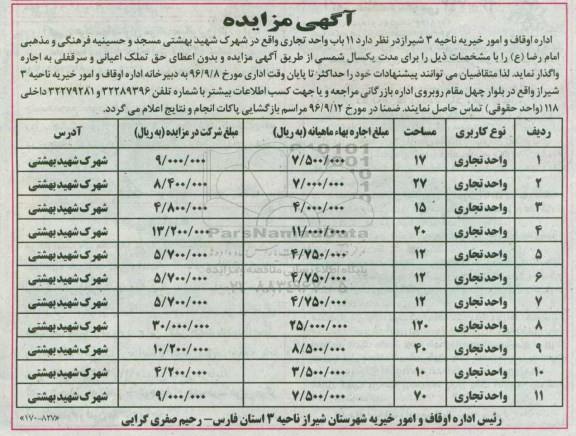 آگهی مزایده
اداره اوقاف و امور خیریه ناحیه ۳ شیراز در نظر دارد ۱۱ باب واحد تجاری واقع در شهرک شهید بهشتی مسجد و حسینیه فرهنگی و مذهبی
امام رضا (ع) را با مشخصات ذیل را برای مدت یکسال شمسی از طریق آگهی مزایده و بدون اعطای حق تملک اعیانی و سرقفلی به اجاره
واگذار نماید. لذا متقاضیان می توانند پیشنهادات خود را حداکثر تا پایان وقت اداری مورخ ۹۶/۹/۸ به دبیرخانه اداره اوقاف و امور خیریه ناحیه ۳
شیراز واقع در بلوار چهل مقام روبروی اداره بازرگانی مراجعه و یا جهت کسب اطلاعات بیشتر با شماره تلفن ۳۲۲۸۹۳۹۶ و ۳۲۲۷۹۲۸۱ داخلی
۱۱۸ (واحد حقوقی) تماس حاصل نمایند. ضمنا در مورخ ۹۶/۹/۱۲ مراسم بازگشایی پاکات انجام و نتایج اعلام می گردد.
ردیف نوع کاربری مساحت مبلغ اجاره بهاء ماهیانه (به ریال) مبلغ شرکت در مزایده (به ریال) آدرس
۱ واحد تجاری ۱۷ ۷/۵۰۰/۰۰۰ ۹/۰۰۰/۰۰۰ شهرک شهید بهشتی
۲ واحد تجاری ۲۷ ۷/۰۰۰/۰۰۰ ۸/۴۰۰/۰۰۰ شهرک شهید بهشتی
۳ واحد تجاری ۱۵ ۴/۰۰۰/۰۰۰ ۴/۸۰۰/۰۰۰ شهرک شهید بهشتی
۴ واحد تجاری ۲۰ ۱۱/۰۰۰/۰۰۰ ۱۳/۲۰۰/۰۰۰ شهرک شهید بهشتی
۵ واحد تجاری ۱۲ ۴/۷۵۰/۰۰۰ ۵/۷۰۰/۰۰۰ شهرک شهید بهشتی
۶ واحد تجاری ۱۲ ۴/۷۵۰/۰۰۰ ۵/۷۰۰/۰۰۰ شهرک شهید بهشتی
۷ واحد تجاری ۱۲ ۴/۷۵۰/۰۰۰ ۵/۷۰۰/۰۰۰ شهرک شهید بهشتی
۸ واحد تجاری ۱۲۰ ۲۵/۰۰۰/۰۰۰ ۳۰/۰۰۰/۰۰۰ شهرک شهید بهشتی
۹ واحد تجاری ۴۰ ۸/۵۰۰/۰۰۰ ۱۰/۲۰۰/۰۰۰ شهرک شهید بهشتی
۱۰ واحد تجاری ۱۰ ۳/۵۰۰/۰۰۰ ۴/۲۰۰/۰۰۰ شهرک شهید بهشتی
۱۱ واحد تجاری ۷۰ ۷/۵۰۰/۰۰۰ ۹/۰۰۰/۰۰۰ شهرک شهید بهشتی
رئیس اداره اوقاف و امور خیریه شهرستان شیراز ناحیه ۳ استان فارس – رحیم صفری گرایی
«۱۷۰۰۸۲۷»
ParsNamadData